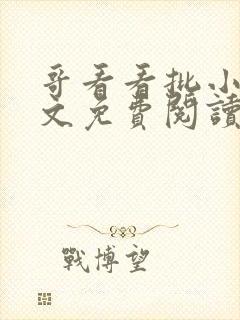 哥看看批小
文免費閱讀
戰博望